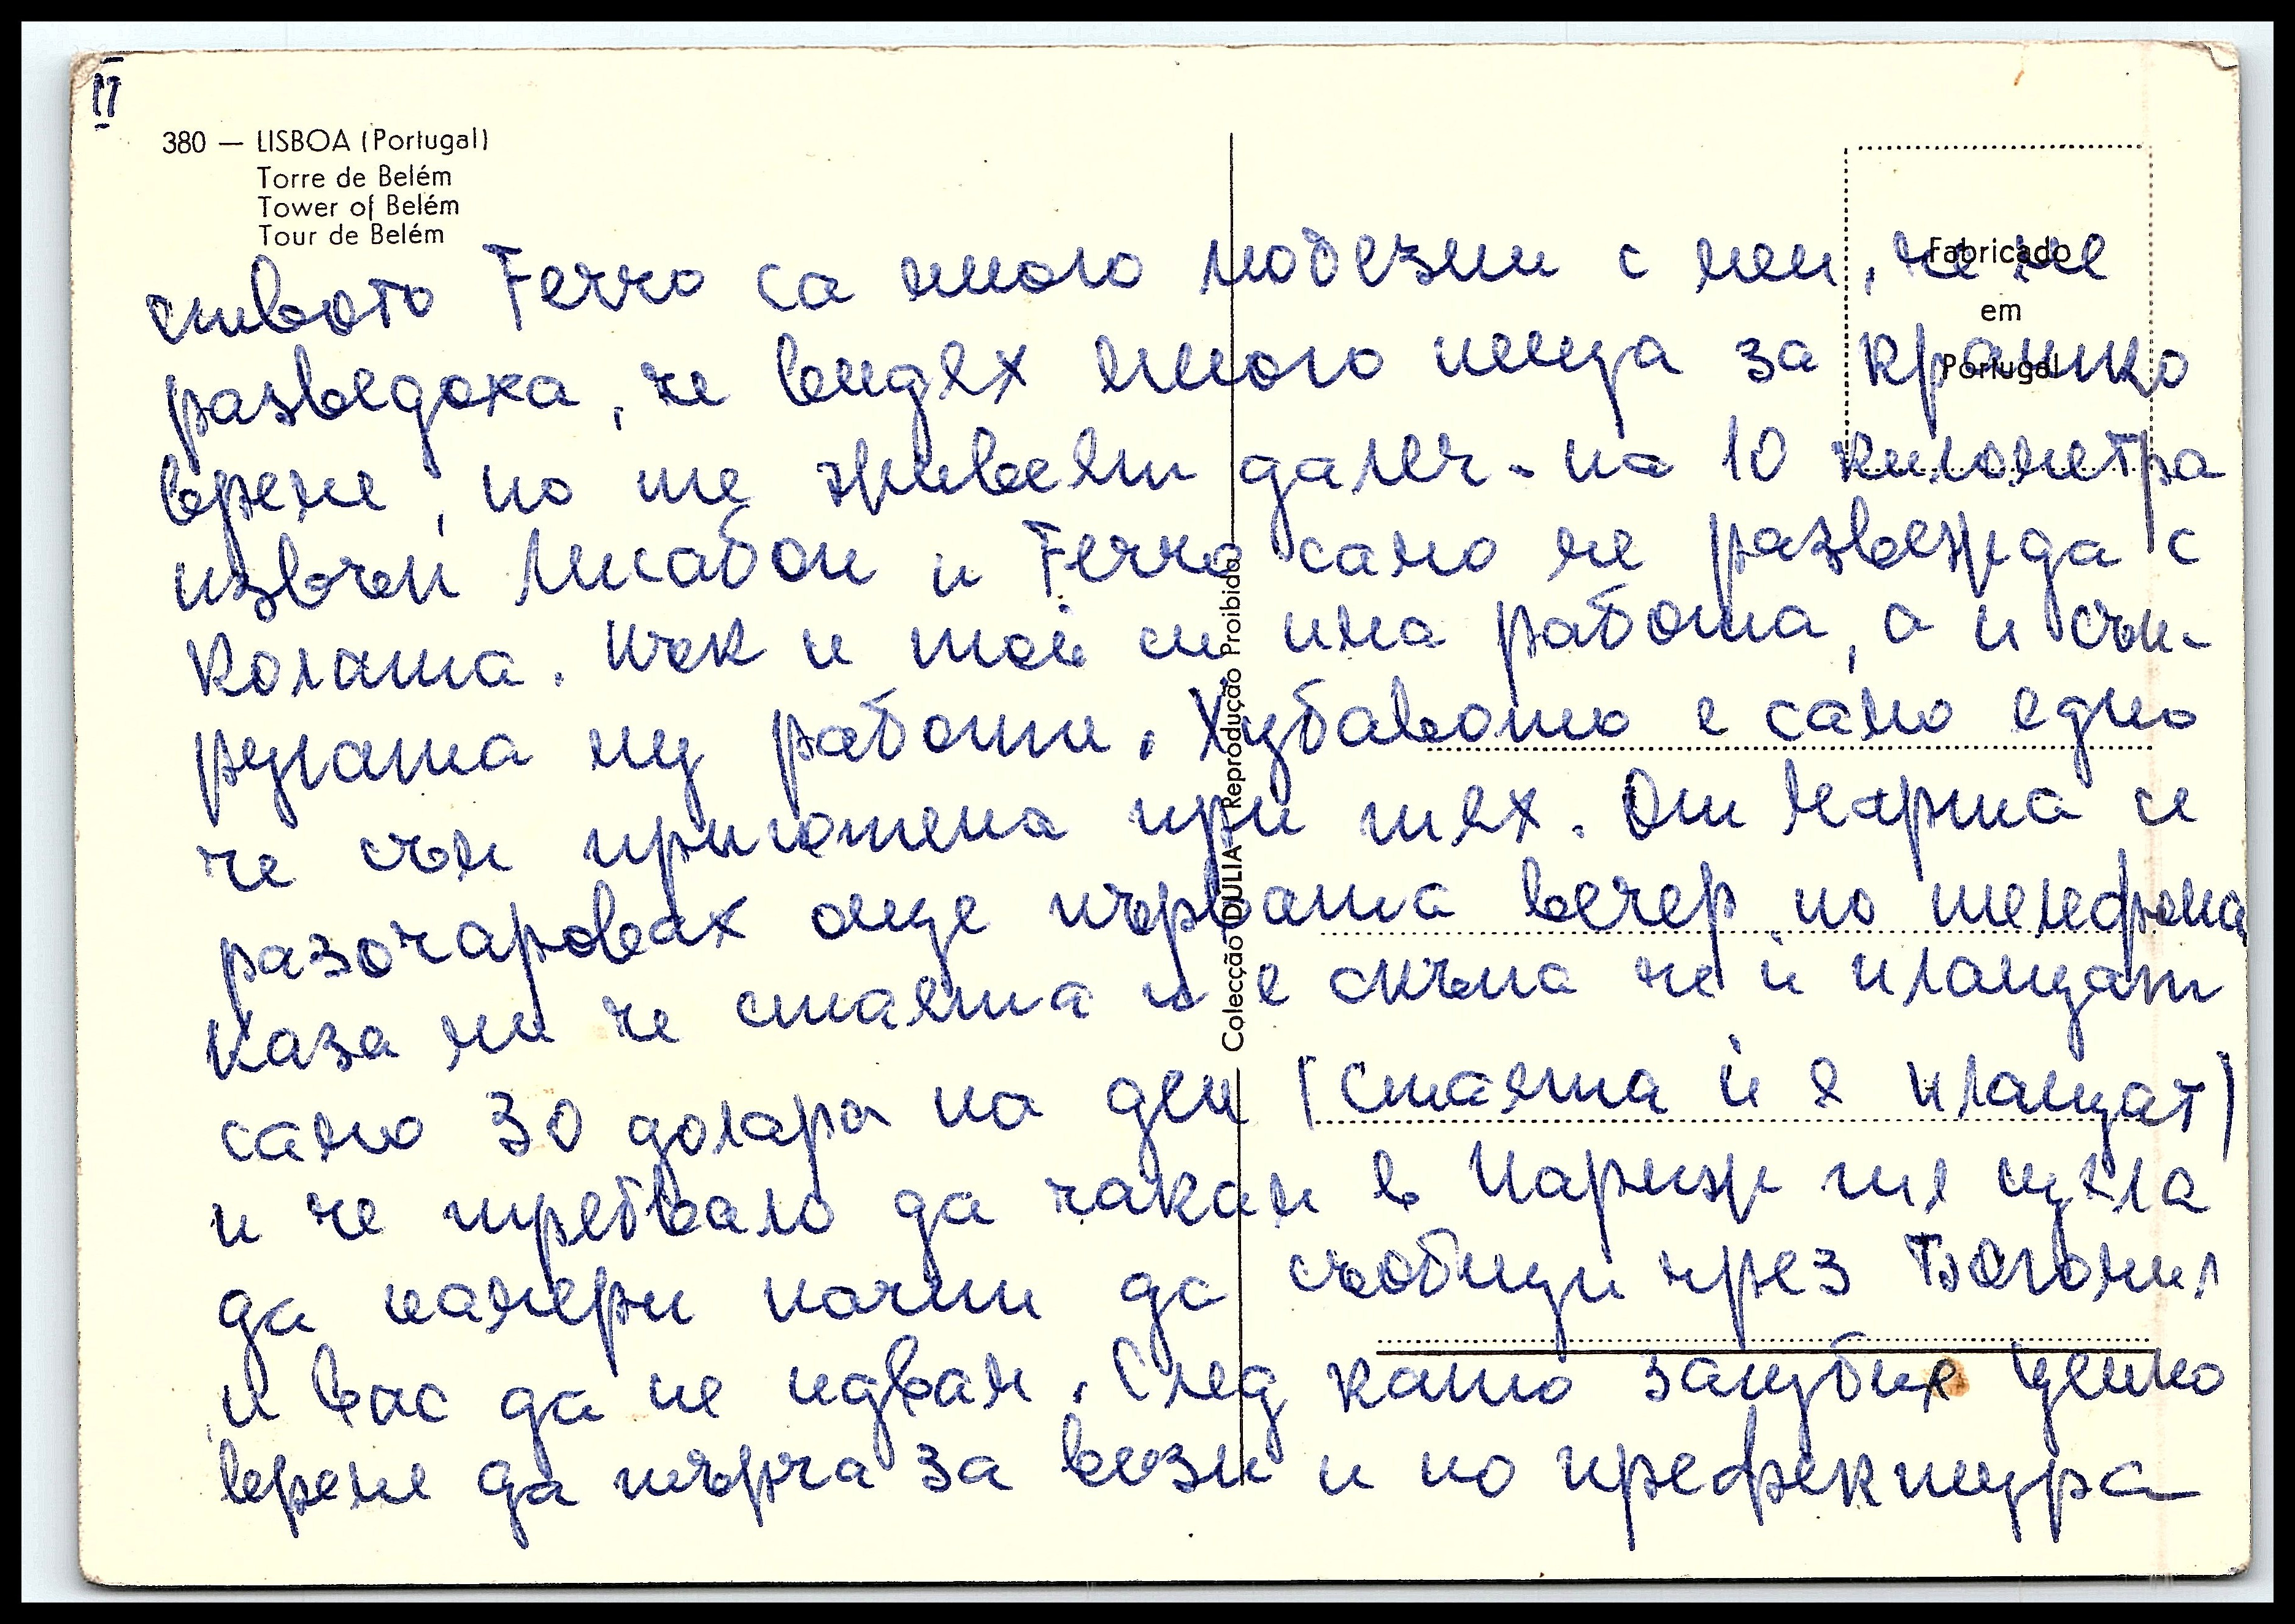 II
380 — LISBOA (Portugal)
Torre de Belém
Tower of Belém
Tour de Belém
Fabricado
em
Portugal
Colecção DULIA Reprodução Proibida
Ferro са много любезни с мен, че ме
разведоха, че видях много неща за кратко
време, но те живеят далеч - на 10 километра
извън Лисабон и Ferro само ме развежда с
колата. Пък и той си има работа, а и съп-
ругата му работи. Хубавото е само едно
че съм приютена при тях. От Марта се
разочаровах още първата вечер по телефона
каза ми че стаята и е скъпа че ѝ плащат
само 30 долара на ден (стаята ѝ е плащат)
и че трябвало да чакам в Париж тя щяла
да намери начин да съобщи чрез Богомил
и вас да не идвам. След като загубих ценно
време да търча за визи и по префектура